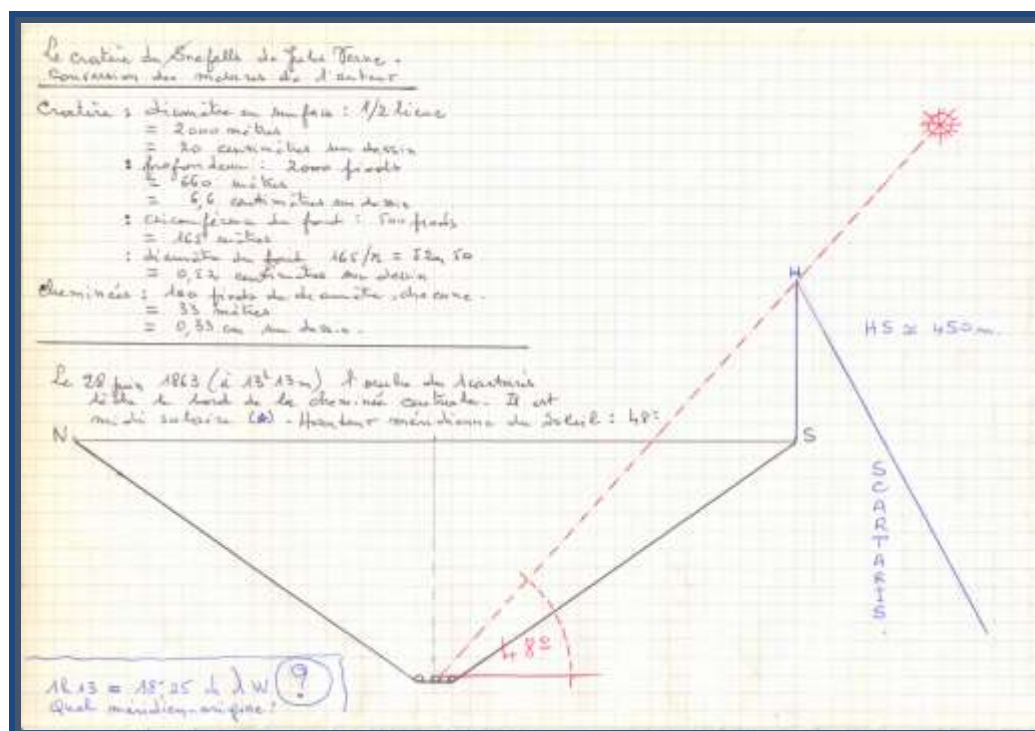 Le cratère du Snefells de Jules Verne.
Conversion des mesures de l'auteur
Cratère : diamètre en surface : 1/2 lieue
= 2000 mètres
= 20 centimètres sur dessin
: profondeur : 2000 pieds
= 660 mètres
= 6,6 centimètres sur dessin
: circonférence du fond : 500 pieds
= 165 mètres
: diamètre du fond 165/π = 52m,50
= 0,52 centimètres sur dessin
Cheminées : 100 pieds de diamètre, chacune.
= 33 mètres
= 0,33 cm sur dessin.
Le 28 juin 1863 (à 13h13m) l'ombre du Scartaris
le bord de la cheminée centrale. Il est
midi solaire (*) - Hauteur méridienne du Soleil : 48°
N
S
H
HS ≃ 450m.
SCARTARIS.
48°
1h13 = 18°25 de λ W ?
Quel méridien-origine ?